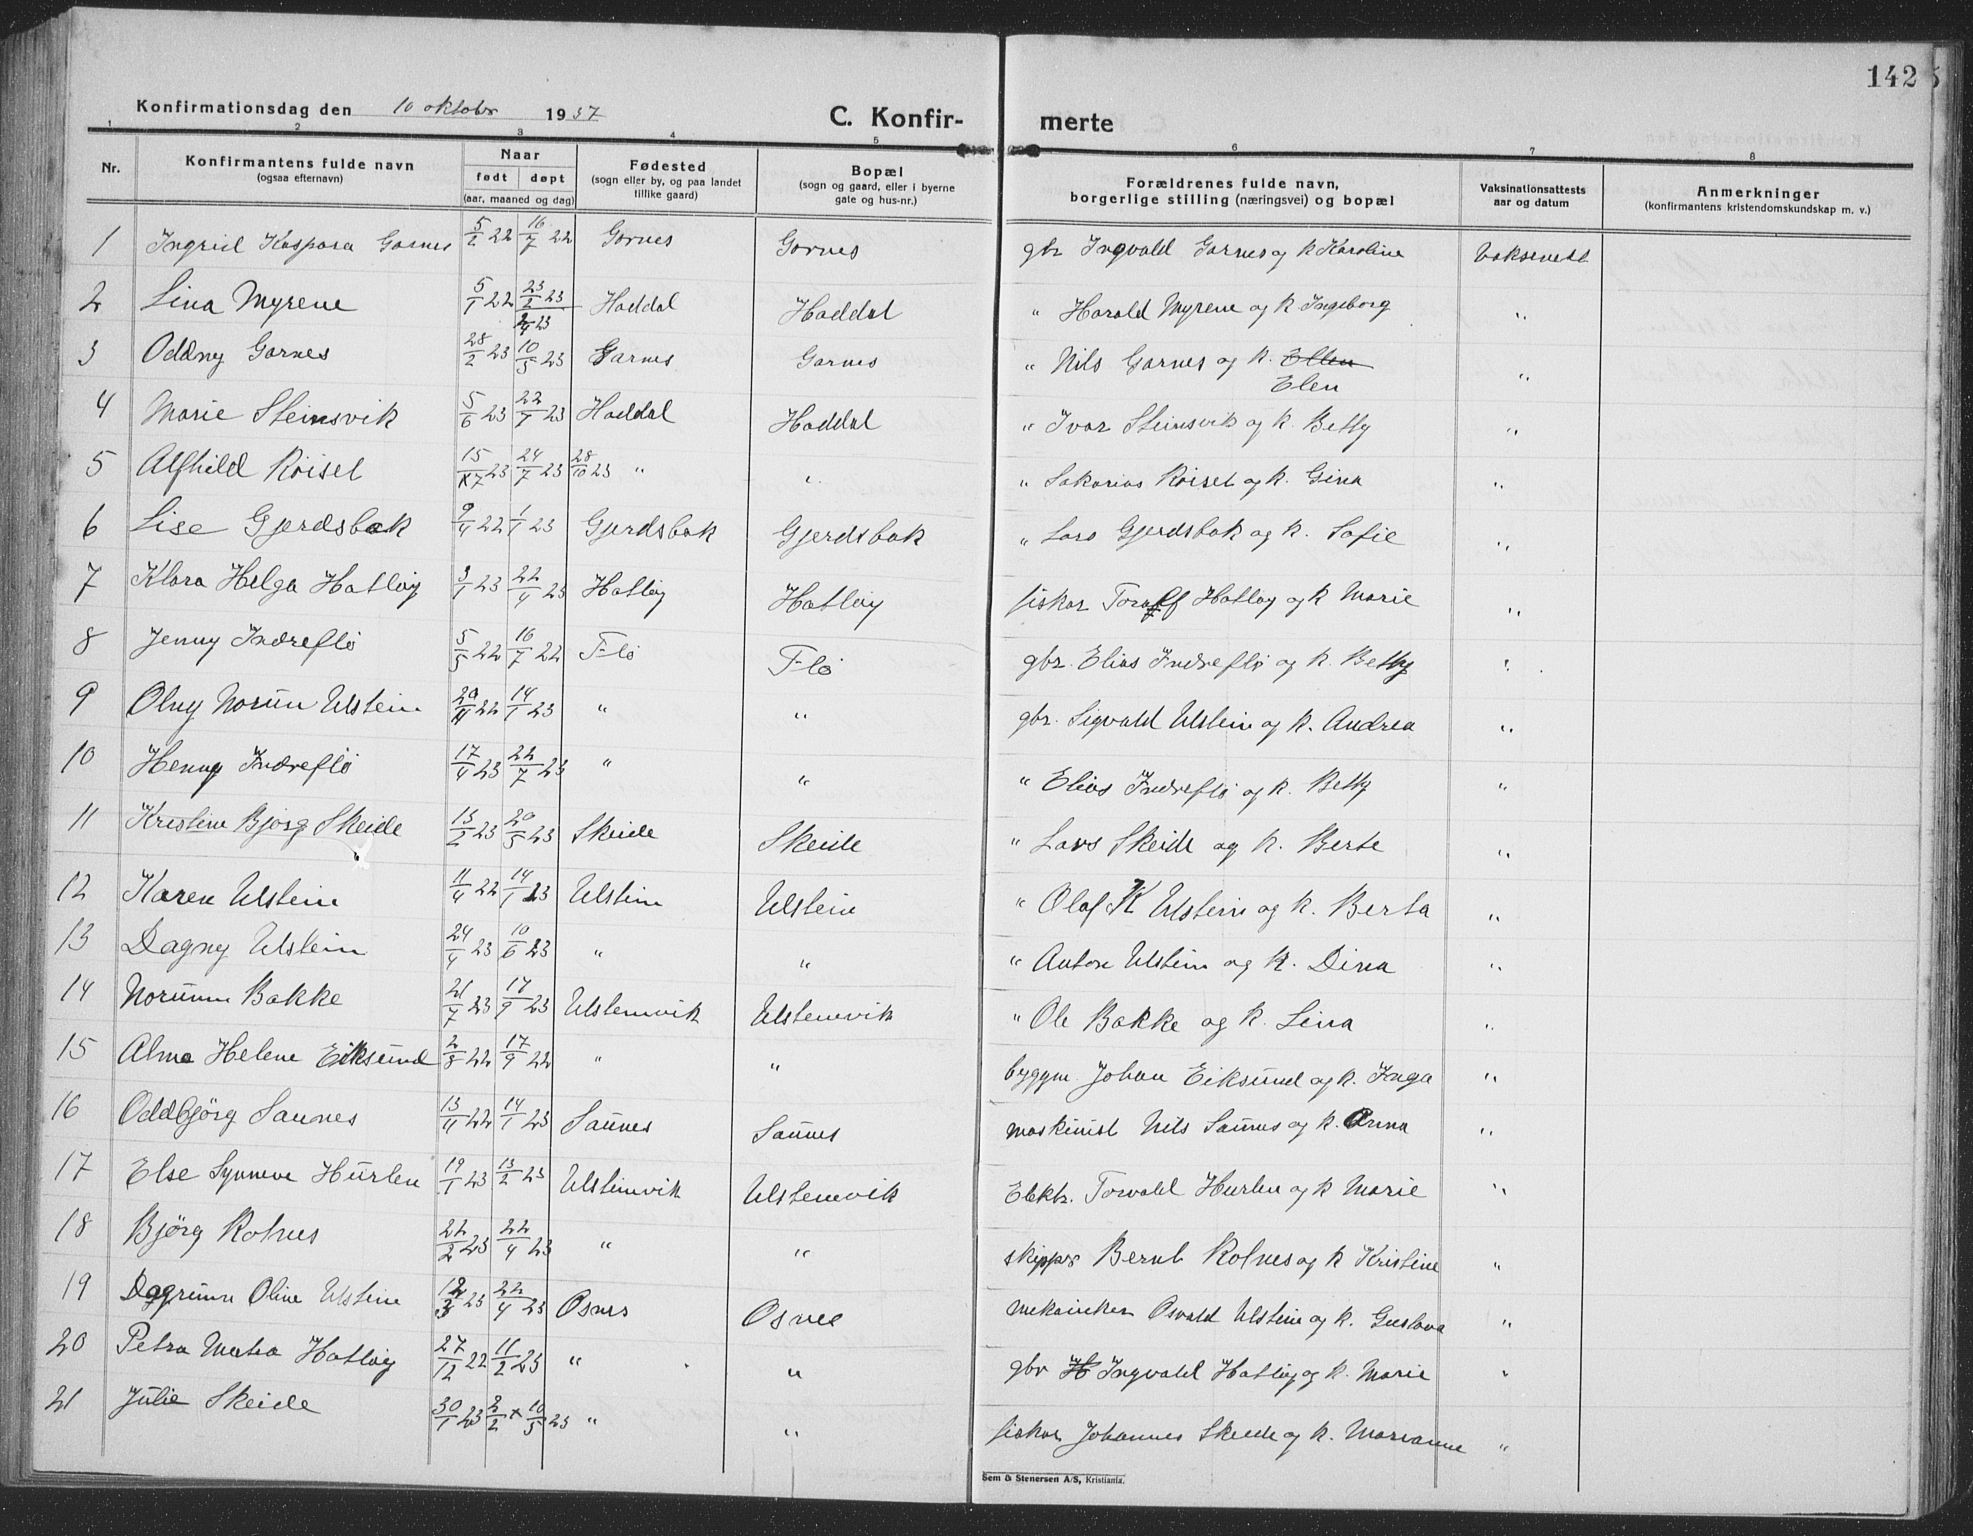 142
Konfirmationsdag den 10 oktober 1937
C. Konfirmerte
1 2 3 4 5 6 7 8
Nr. | Konfirmantens fulde navn (ogsaa efternavn) | Naar født døpt (aar, maaned og dag) | Fødested (sogn eller by, og paa landet tillike gaard) | Bopæl (sogn og gaard, eller i byerne gate og hus-nr.) | Forældrenes fulde navn, borgerlige stilling (næringsvei) og bopæl | Vaksinationsattests aar og datum | Anmerkninger (konfirmantens kristendomskundskap m. v.)
1 Ingrid Kaspara Garnes 5/2 22 16/7 22 Garnes Garnes gbr Ingvald Garnes og k Karoline Vaksinert
2 Lina Myrene 5/1 22 23/2 23 Haddal Haddal " Harald Myrene og k Ingeborg "
3 Oddny Garnes 28/2 23 10/5 23 Garnes Garnes " Nils Garnes og k. Ellen Elen "
4 Marie Steinsvik 5/6 23 22/7 23 Haddal Haddal " Ivar Steinsvik og k. Betty "
5 Alfhild Röisel 15/7 23 24/7 23 28/10 23 " " " Sakarias Röisel og k. Gina "
6 Lise Gjerdsbak 9/4 22 1/1 23 Gjerdsbak Gjerdsbak " Lars Gjerdsbak og k. Sofie "
7 Klara Helga Hatlöy 3/1 23 22/4 23 Hatlöy Hatlöy fiskar Toralf Hatlöy og k Marie "
8 Jenny Indreflö 5/5 22 16/7 22 Flö Flö gbr. Elias Indreflö og k. Betty "
9 Olny Norun Ulstein 20/11 22 14/1 23 " " gbr. Sigvald Ulstein og k. Andrea "
10 Henny Indreflö 17/4 23 22/7 23 " " " Elias Indreflö og k. Betty "
11 Kristine Bjørg Skeide 13/2 23 20/5 23 Skeide Skeide " Lars Skeide og k. Berte "
12 Karen Ulstein 11/4 22 14/1 23 Ulstein Ulstein " Olaf K Ulstein og k. Berta "
13 Dagny Ulstein 24/4 23 10/6 23 " " " Anton Ulstein og k. Dina "
14 Norunn Bakke 21/7 23 17/9 23 Ulsteinvik Ulsteinvik " Ole Bakke og k. Lina "
15 Alma Helene Eiksund 2/8 22 17/9 22 " " byggm. Johan Eiksund og k. Inga "
16 Oddbjörg Saunes 13/11 22 14/1 23 Saunes Saunes maskinist Nils Saunes og k. Anna "
17 Else Synneve Hurlen 19/1 23 13/2 23 Ulsteinvik Ulsteinvik Elektr. Torvald Hurlen og k Marie "
18 Bjørg Rotnes 22/2 23 22/4 23 " " skipper Bernt Rotnes og k Kristine "
19 Dagrunn Oline Ulstein 12/3 23 22/4 23 Osnes Osnes mekaniker Osvald Ulstein og k. Gustava "
20 Petra Hatlöy 27/12 22 11/2 23 " " gbr Ingvald Hatlöy og k. Marie "
21 Julie Skeide 30/1 23 2/2 + 10/5 23 " " fiskar Johannes Skeide og k. Marianne "
Sem & Stenersen A/S, Kristiania.